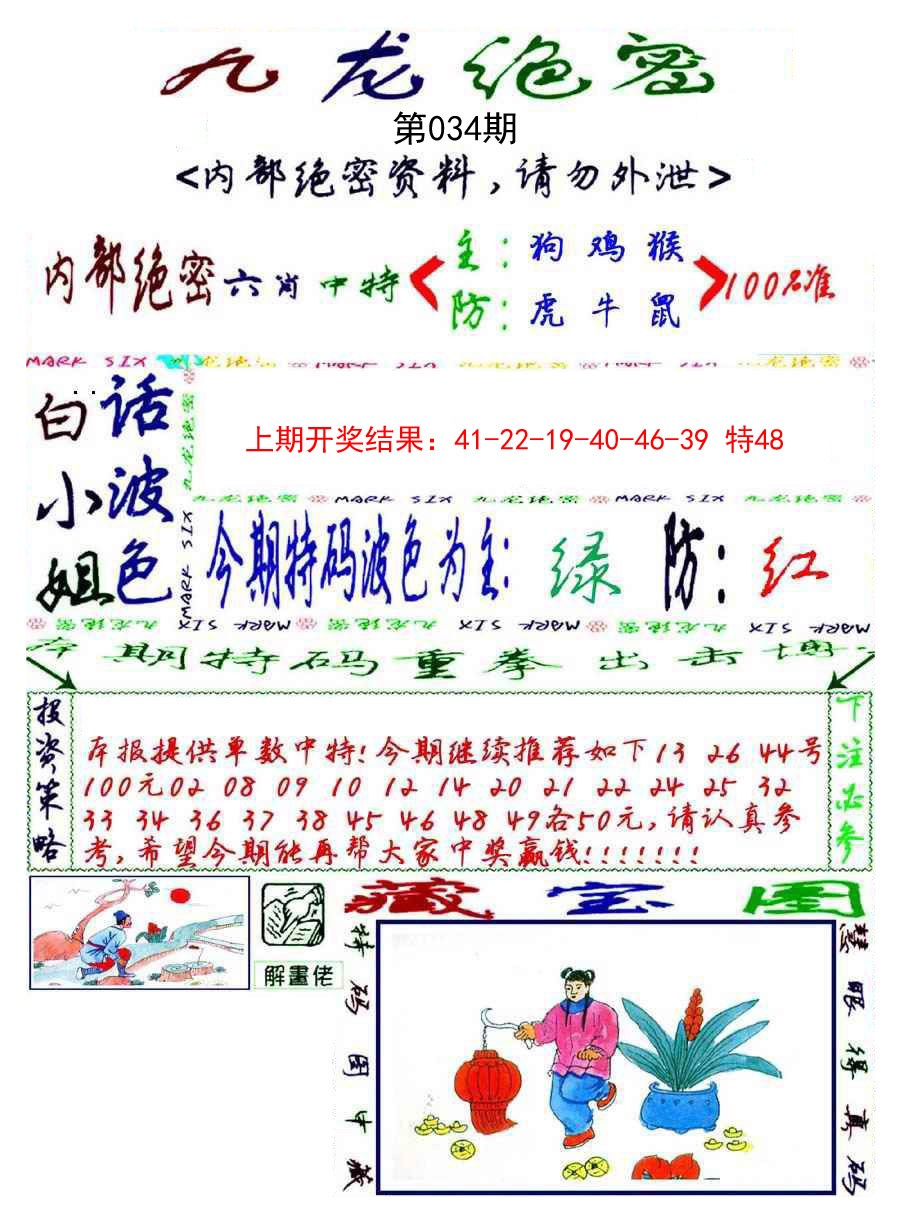 九龙绝密
第034期
<内部绝密资料，请勿外泄>
内部绝密六肖中特
主：狗 鸡 猴
防：虎 牛 鼠
100%准
MARK SIX 九龙绝密 MARK SIX 九龙绝密 MARK SIX
白话小波姐色
九龙绝密 MARK SIX
上期开奖结果：41-22-19-40-46-39 特48
九龙绝密 MARK SIX 九龙绝密 MARK SIX
今期特码波色为主：绿 防：红
MARK SIX 九龙绝密 MARK SIX 九龙绝密 MARK SIX
本期特码重拳出击
投资策略
本报提供单数中特！今期继续推荐如下13 26 44号
100元02 08 09 10 12 14 20 21 22 24 25 32
33 34 36 37 38 45 46 48 49各50元，请认真参
考，希望今期能再帮大家中奖赢钱！！！！！！！
下注必参
解畫佬
藏宝图
特码图中藏
慧眼得真码